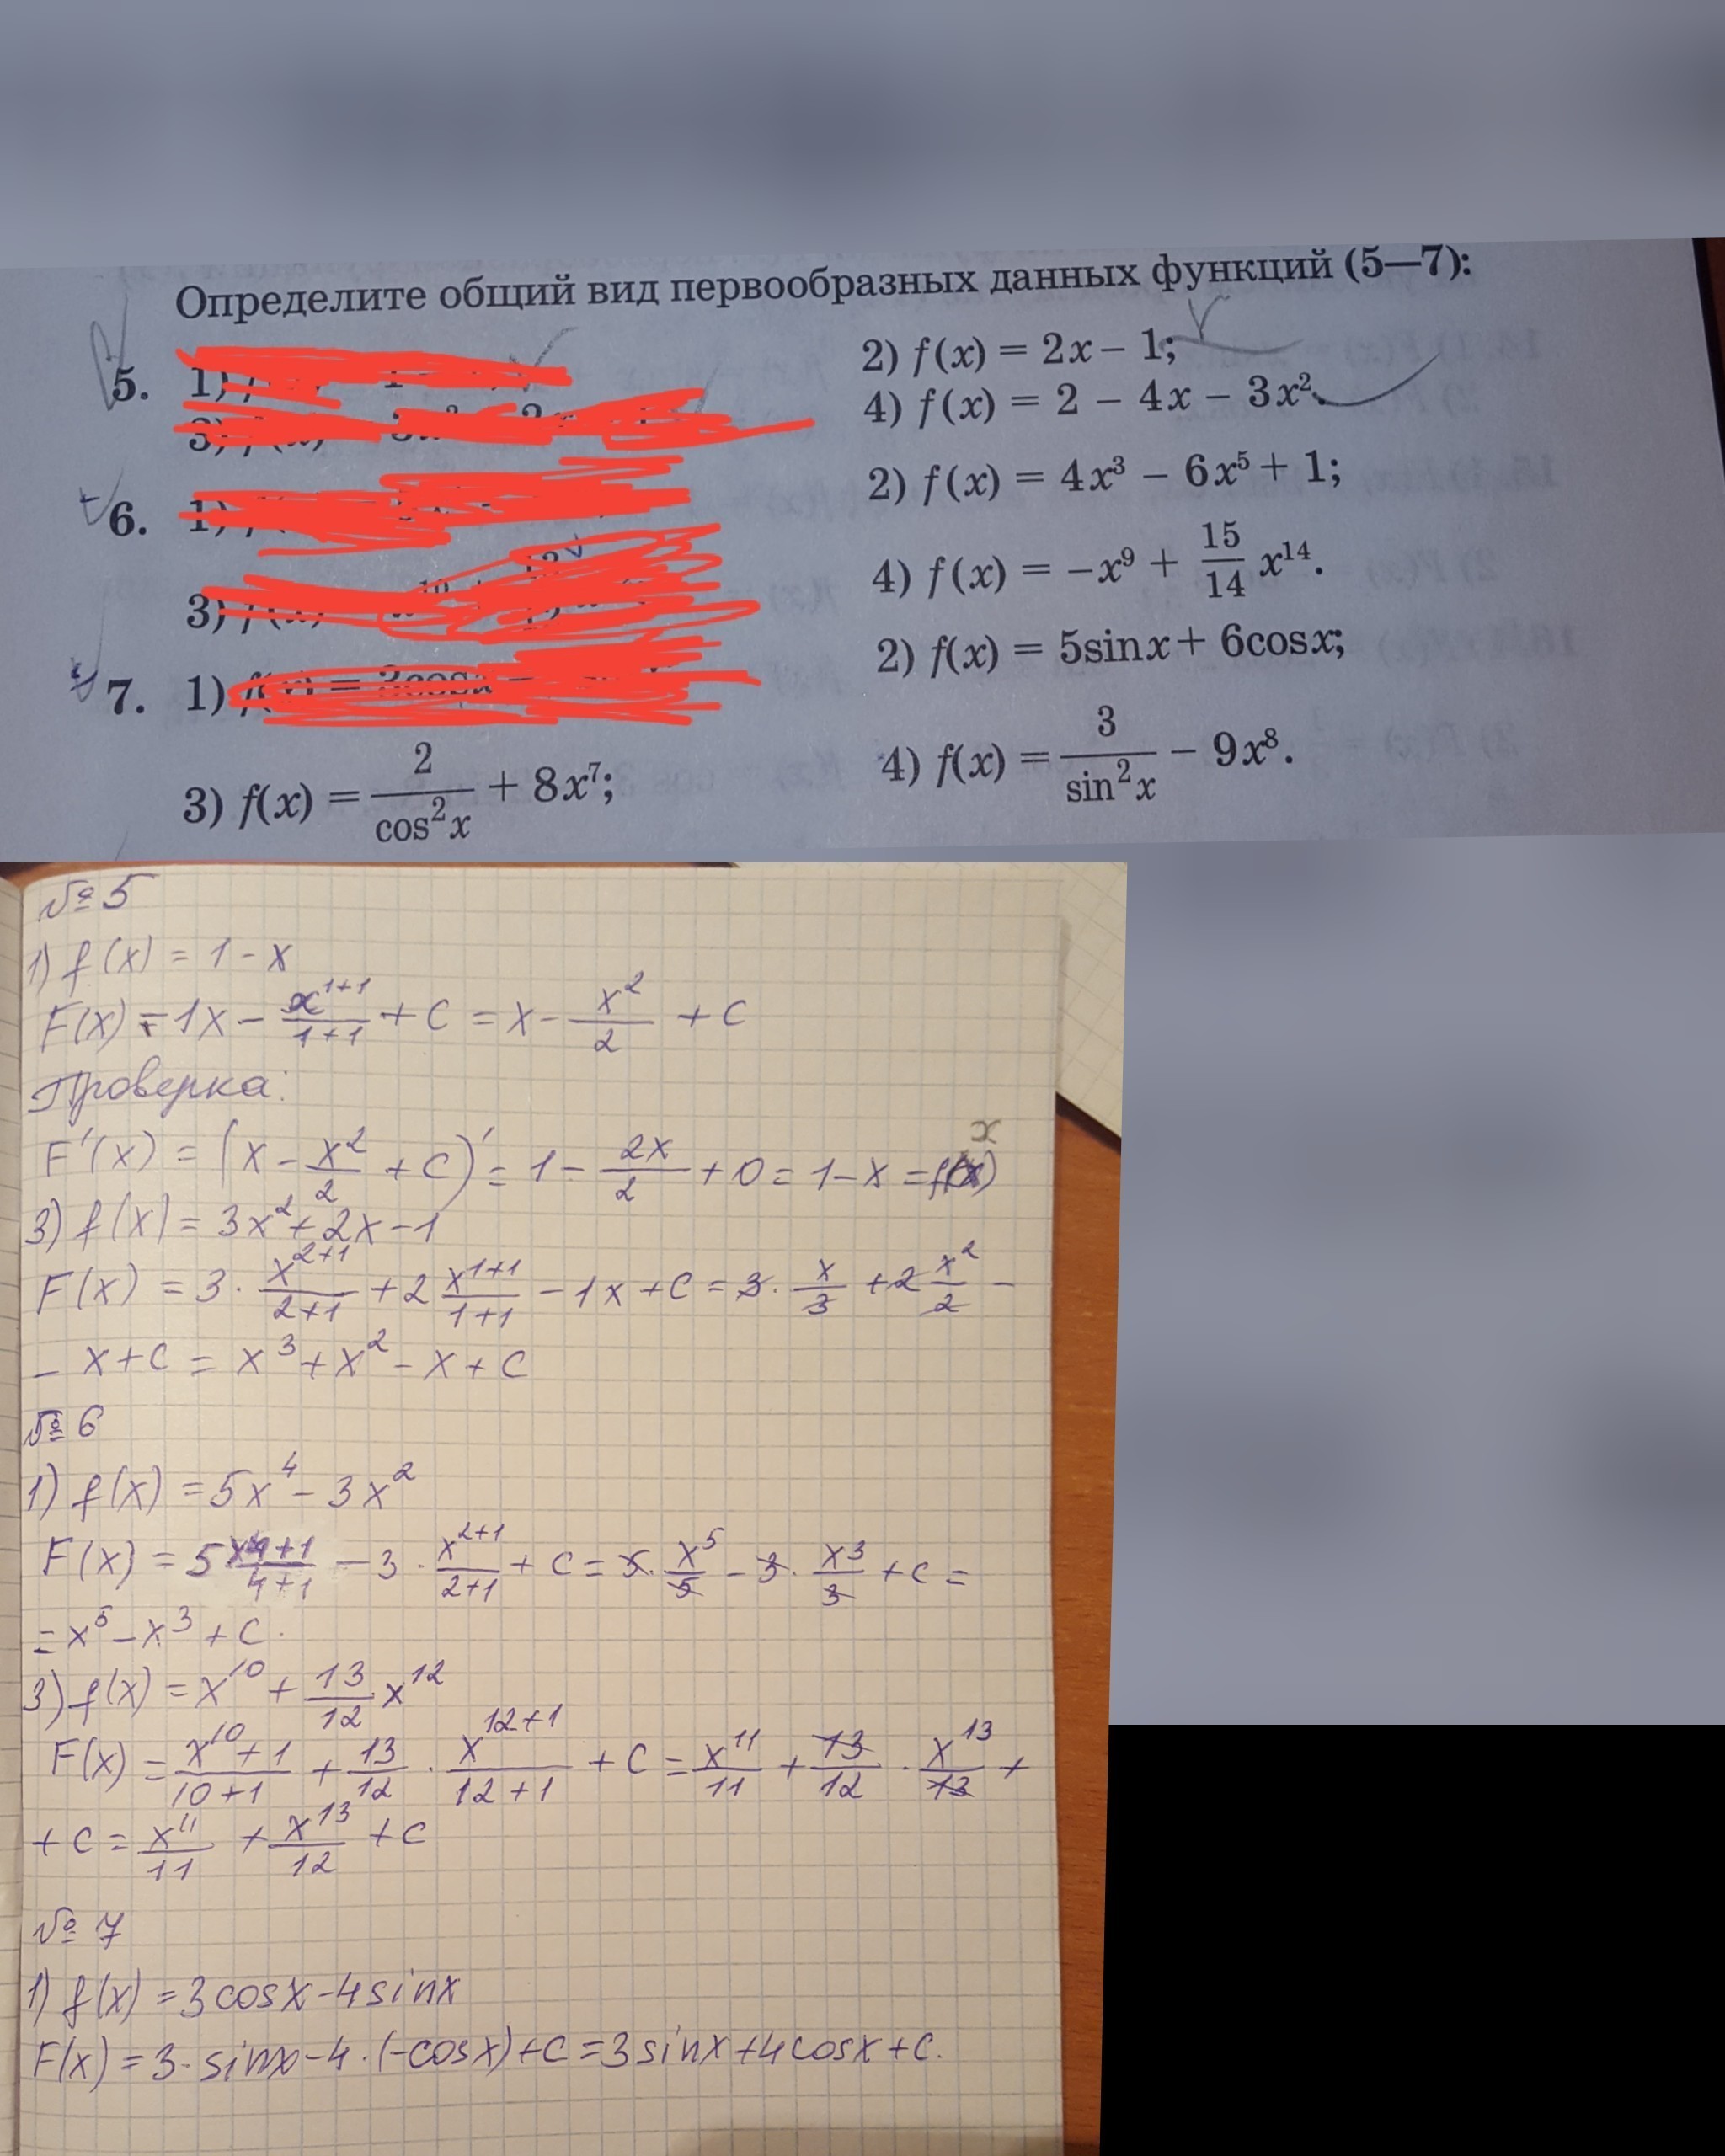 Определите общий вид первообразных данных функций (5—7):
5. 1)
2) f(x) = 2x − 1;
3)
4) f(x) = 2 − 4x − 3x².
6. 1)
2) f(x) = 4x³ − 6x⁵ + 1;
3)
4) f(x) = −x⁹ + 15/14 x¹⁴.
7. 1)
2) f(x) = 5sinx + 6cosx;
3) f(x) = 2/cos²x + 8x⁷;
4) f(x) = 3/sin²x − 9x⁸.
№ 5
1) f(x) = 1 - x
F(x) = 1x - x¹⁺¹/1+1 + C = x - x²/2 + C
Проверка:
F'(x) = (x - x²/2 + C)' = 1 - 2x/2 + 0 = 1 - x = f(x)
3) f(x) = 3x² + 2x - 1
F(x) = 3 · x²⁺¹/2+1 + 2 x¹⁺¹/1+1 - 1x + C = 3 · x/3 + 2 x²/2 -
- x + C = x³ + x² - x + C
№ 6
1) f(x) = 5x⁴ - 3x²
F(x) = 5 x⁴⁺¹/4+1 - 3 · x²⁺¹/2+1 + C = 5 · x⁵/5 - 3 · x³/3 + C =
= x⁵ - x³ + C.
3) f(x) = x¹⁰ + 13/12 x¹²
F(x) = x¹⁰⁺¹/10+1 + 13/12 · x¹²⁺¹/12+1 + C = x¹¹/11 + 13/12 · x¹³/13 +
+ C = x¹¹/11 + x¹³/12 + C
№ 7
1) f(x) = 3cosx - 4sinx
F(x) = 3 · sinx - 4 · (-cosx) + C = 3sinx + 4cosx + C.